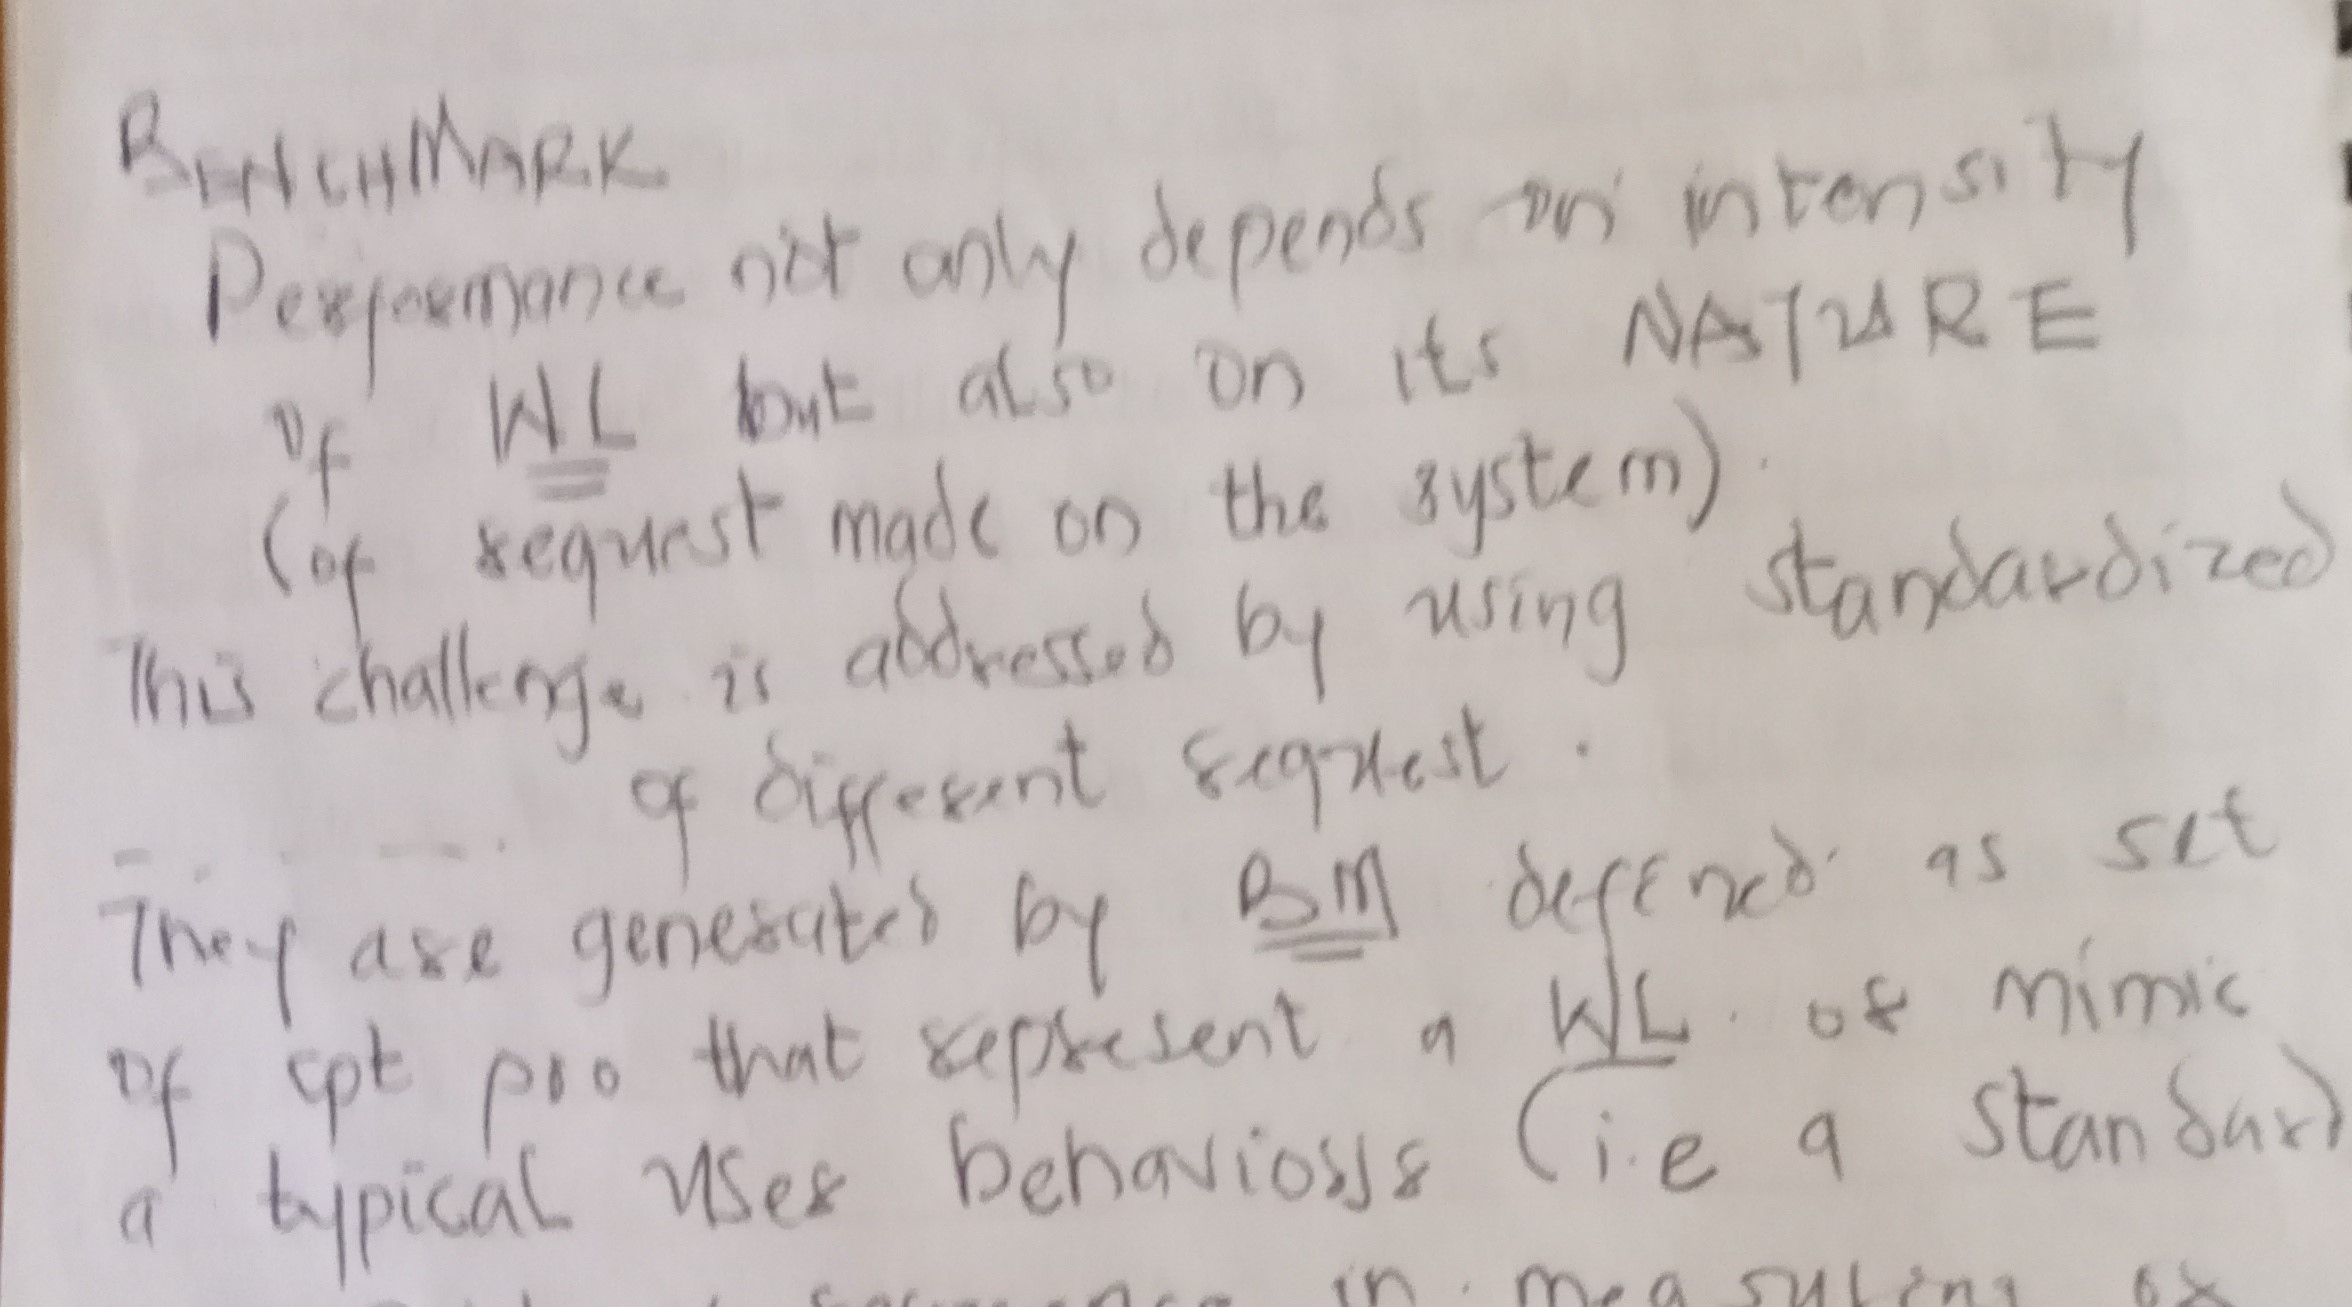 BENCHMARK
Performance not only depends on intensity
of WL but also on its NATURE
(of request made on the system).
This challenge is addressed by using standardized
of different request.
They are generated by BM defined as set
of cpt pro that represent a WL or mimic
a typical user behavior (i.e a standard
in measuring or